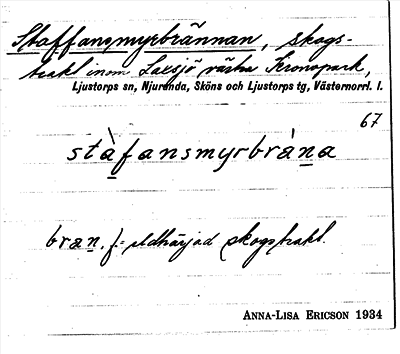 Staffansmyrbrännan, skogs-
trakt inom Laxsjö västra Kronopark,
Ljustorps sn, Njurunda, Sköns och Ljustorps tg, Västernorrl. l.
67
stàfansmyrbràna
bran, f. = eldhärjad skogstrakt.
ANNA-LISA ERICSON 1934